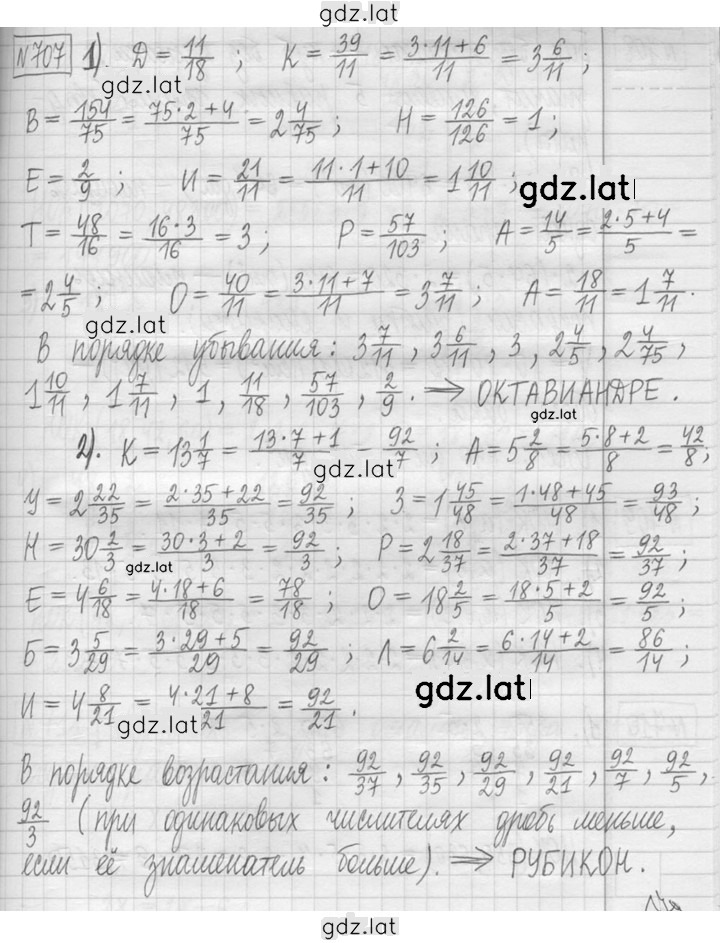 gdz.lat
№707 1). Д = 11/18 ; К = 39/11 = (3·11+6)/11 = 3 6/11 ;
gdz.lat
В = 154/75 = (75·2+4)/75 = 2 4/75 ; Н = 126/126 = 1 ;
Е = 2/9 ; И = 21/11 = (11·1+10)/11 = 1 10/11 ;
gdz.lat
Т = 48/16 = (16·3)/16 = 3 ; Р = 57/103 ; А = 14/5 = (2·5+4)/5 =
= 2 4/5 ; О = 40/11 = (3·11+7)/11 = 3 7/11 ; А = 18/11 = 1 7/11 .
gdz.lat
В порядке убывания : 3 7/11 , 3 6/11 , 3 , 2 4/5 , 2 4/75 ,
1 10/11 , 1 7/11 , 1 , 11/18 , 57/103 , 2/9 . ⇒ ОКТАВИАНДРЕ .
gdz.lat
2). К = 13 1/7 = (13·7+1)/7 - 92/7 ; А = 5 2/8 = (5·8+2)/8 = 42/8 ;
gdz.lat
У = 2 22/35 = (2·35+22)/35 = 92/35 ; З = 1 45/48 = (1·48+45)/48 = 93/48 ;
Н = 30 2/3 = (30·3+2)/3 = 92/3 ; Р = 2 18/37 = (2·37+18)/37 = 92/37 ;
gdz.lat
Е = 4 6/18 = (4·18+6)/18 = 78/18 ; О = 18 2/5 = (18·5+2)/5 = 92/5 ;
Б = 3 5/29 = (3·29+5)/29 = 92/29 ; Л = 6 2/14 = (6·14+2)/14 = 86/14 ;
gdz.lat
И = 4 8/21 = (4·21+8)/21 = 92/21 .
gdz.lat
В порядке возрастания : 92/37 , 92/35 , 92/29 , 92/21 , 92/7 , 92/5 ,
92/3 (при одинаковых числителях дробь меньше,
если её знаменатель больше). ⇒ РУБИКОН .
gdz.lat